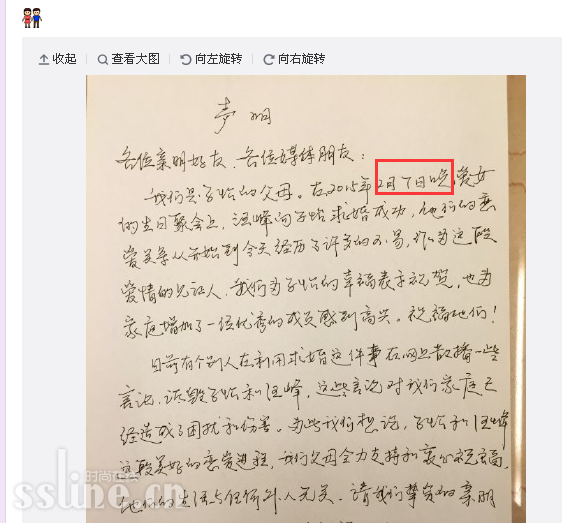 收起 查看大图 向左旋转 向右旋转
声明
各位亲朋好友、各位媒体朋友：
我们是子怡的父母。在2015年2月7日晚，爱女
的生日聚会上，汪峰向子怡求婚成功，他们的恋
爱关系从开始到今天经历了许多的不易，作为这段
爱情的见证人，我们为子怡的幸福表示祝贺，也为
家庭增加了一位优秀的成员感到高兴。祝福他们！
日前有个别人在利用求婚这件事在网上散播一些
言论，诋毁子怡和汪峰，这些言论对我们家庭已
经造成了困扰和伤害。为此我们想说，子怡和汪峰
这段美好的恋爱进程，我们父母全力支持和衷心祝福，
他们的生活与任何外人无关。请我们挚爱的亲朋
时尚在线
ssline.cn